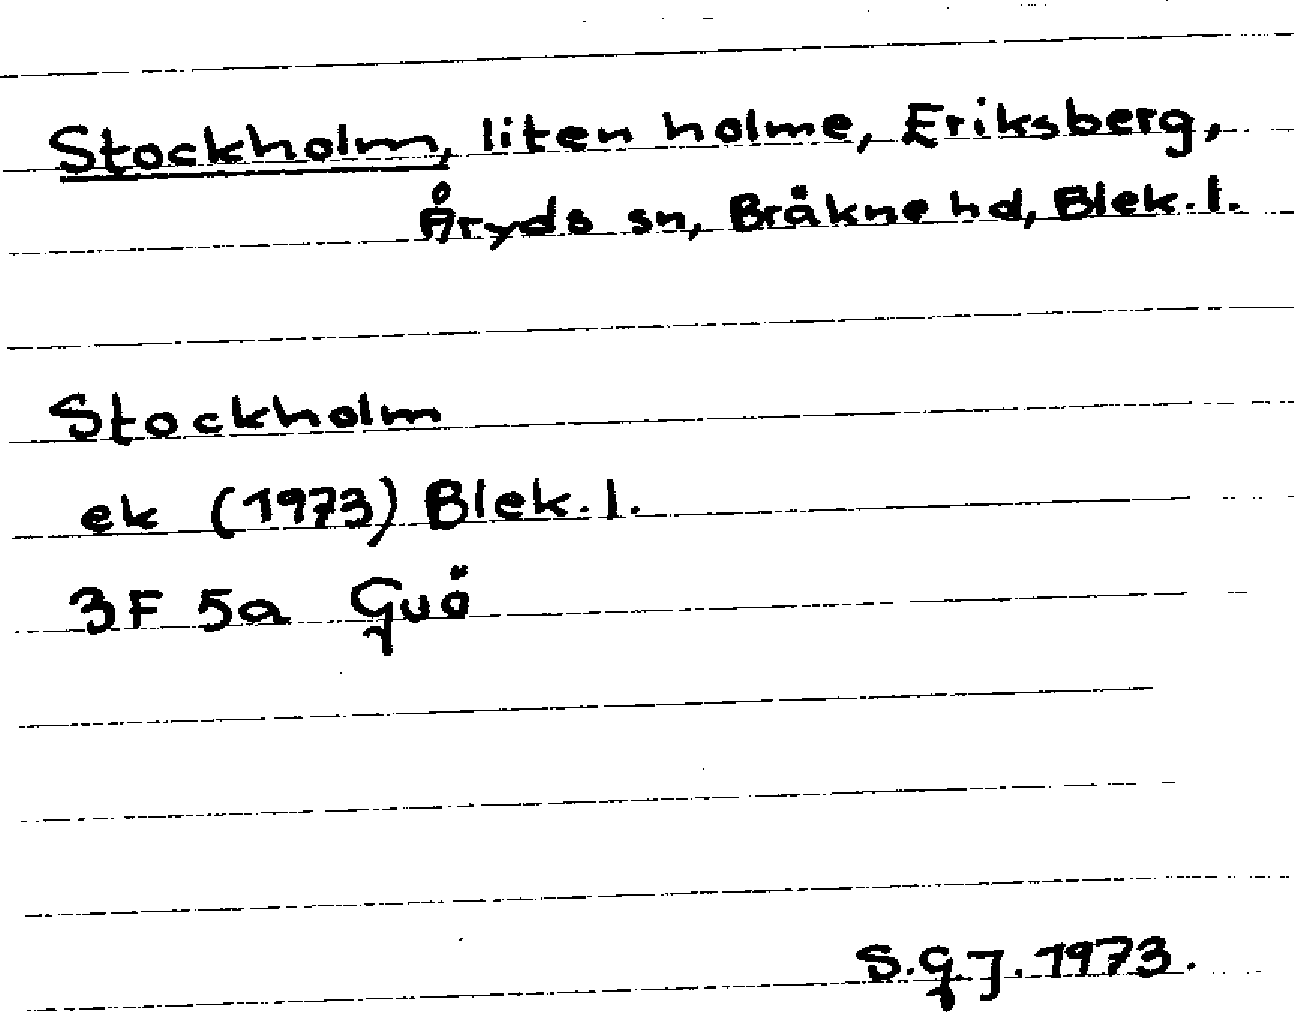 Stockholm, liten holme, Eriksberg,
Åryds sn, Bräkne hd, Blek. l.
Stockholm
ek (1973) Blek. l.
3F 5a Guö
S.G.J. 1973.